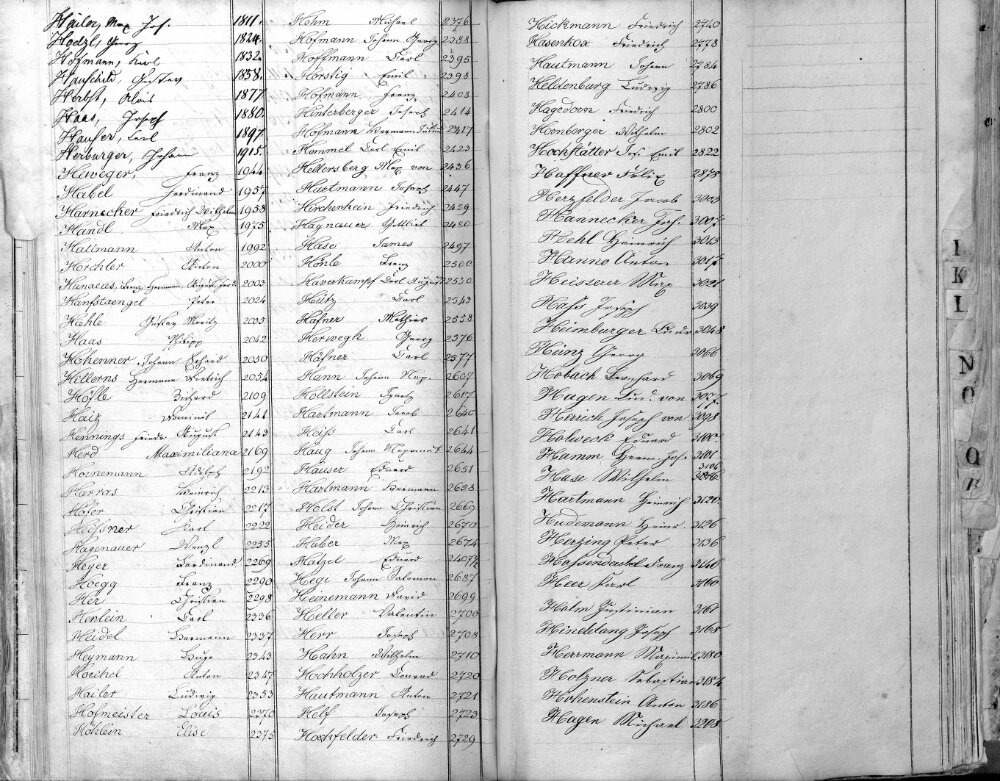 Hailer, Max Jos. 1811.
Hoetzl, Georg 1824.
Hofmann, Karl 1832.
Hauschild Gustav 1838.
Herbst, Alois 1877
Haas, Joseph 1880.
Hauser, Carl 1897
Herburger, Johann 1915.
Hitweger Franz 1944
Habel Ferdinand 1957
Harnecker Friedrich Wilhelm 1958
Handl Max 1975
Hallmann Anton 1992
Hechler Anton 2000
2003
Hanfstaengel Peter 2024
Hehle Gustav Moritz 2033
Haas Philipp 2042
Hohenner Johann 2050
Hellerns Hermann Dietrich 2054
Hösle Richard 2109
Haitz Dominik 2141
Hennings Friedr. August 2143
Herd Maximiliana 2169
Hoenemann Adolph 2192
Harras Heinrich 2213
Höfer Christian 2217
Heissner Carl 2222
Hagenauer Wenzl 2255
Hoyer Ferdinand 2269
Hoegg Franz 2290
Her Christian 2298
Henlein Carl 2336
Heidel Hermann 2337
Heymann Hugo 2343
Hoechel Anton 2347
Hailer Ludwig 2353
Hofmeister Louis 2370
Höhlein Elise 2375
Hohm Michael 2376
Hofmann Johann Georg 2388
Hoffmann Carl 2395
Horstig Emil 2398
Hofmann Franz 2408
Hinterberger Joseph 2414
Hofmann Hermann 2417
Hommel Carl Emil 2423
Hellersberg Max von 2436
Hartmann Joseph 2447
Hirchenhein Friedrich 2459
Hagnauer Gottlieb 2480
Hase James 2497
Höhle Franz 2500
Haverkampf Carl August 2530
Hütz Carl 2543
Hafner Mathias 2558
Herwegh Georg 2570
Höfner Carl 2577
Hann Johann Nep. 2607
Hollstein Ignatz 2617
Hartmann Jacob 2640
Heiß Carl 2641
Haug Johann Nepomuk 2644
Hauser Eduard 2651
Hartmann Hermann 2658
Holst Johann Christian 2669
Heider Heinrich 2670
Huber Max 2674
Hätzel Eduard
Hegi Johann Salomon 2687
Heinemann David 2699
Heller Valentin 2700
Herr Joseph 2708
Hahn Wilhelm 2710
Hochholzer Conrad 2720
Hautmann Anton 2721
Helf Joseph 2723
Hochfelder Friedrich 2729
Hickmann Friedrich 2740
Hasenkox Friedrich 2778
Hautmann Johann 2784
Heldenburg Ludwig 2786
Hagedorn Friedrich 2800
Hornborger Wilhelm 2802
Hochstätter Jos. Emil 2822
Haffner Felix 2878
Herzfelder Jacob 3003
Hannecker Joh. 3007
Hehl Heinrich 3013
Hanno Anton 3017
Heisterer Max 3031
Haß Joseph 3039
Heimburger Ludw. 3048
Heinz Georg 3066
Hobach Bernhard 3069
Hagen Lud. von
Herrich Joseph von 3098
Hotweck Eduard 3100
Hamon Herm. Jos. 3101
Hase Wilhelm 3106
Hartmann Heinrich 3120
Hudemann Heinr. 3126
Hatzing Peter 3136
Franz 3140
Heer Karl 3160
Halm Justinian 3161
Hindelang Joseph 3168
Herrmann Maximil. 3180
Holzner Sebastian 3184
Hohenstein Anton 3186
Hagen Michael
I
KL
NO
Q